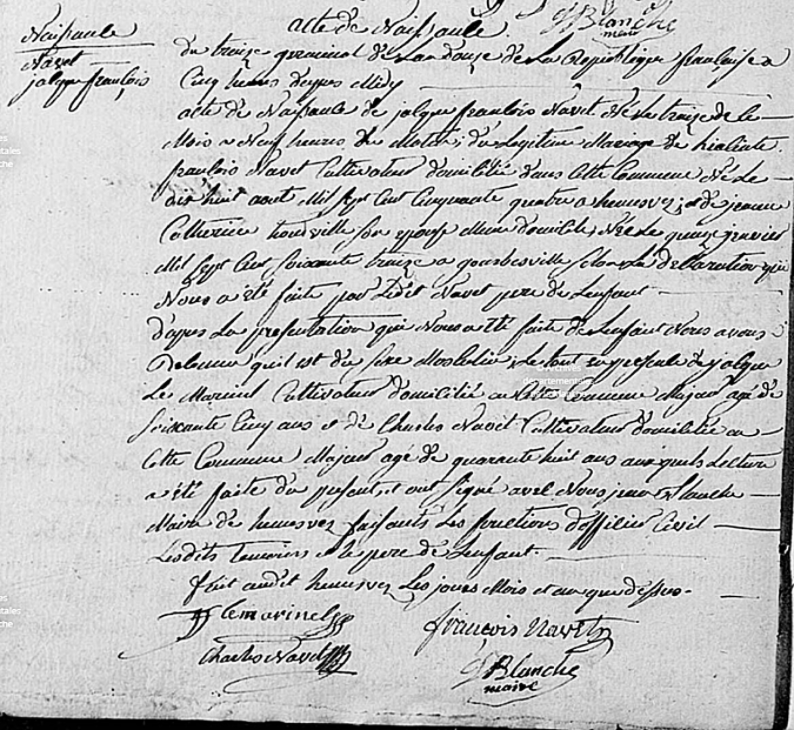 Naissance
Navet
jacque françois
acte de Naissance.
J Blanche
maire
du treize germinal de l'an douze de La République française a
Cinq heures depuis Midy
acte de Naissance de jacque francois Navet Né Le treize de ce
Mois a Neuf heures du Matin, du Legitime Mariage de hiacinte
francois Navet Cultivateur domicilié dans Cette Commune Né Le
dix huit aout Mil sept Cent Cinquante quatre a hemevez, et de jeanne
Catherine son epouse Meme domicile, Née Le quinze janvier
Mil sept Cent soixante treize a gourbesville selon La declaration qui
Nous a été faite par Ledit Navet pere de Lenfant
d'apres La presentation qui Nous a été faite de Lenfant Nous avons
Reconnu qu'il est du sexe Masculin, Le tout en presence de jacque
Le Marinel Cultivateur domicilié en Cette Commune Majeur agé de
soixante Cinq ans et de Charles Navet Cultivateur domicilié en
Cette Commune Majeur agé de quarante huit ans auxquels Lecture
a été faite du present, et ont signé avec Nous jean Blanche
Maire de hemevez faisants Les fonctions d'officier Civil
Lesdits temoins et le pere de Lenfant.
fait audit hemevez Les jours Mois et an que dessus.
J lemarinel
françois Navet
Charles Navet
J Blanche
maire
archives
departementales